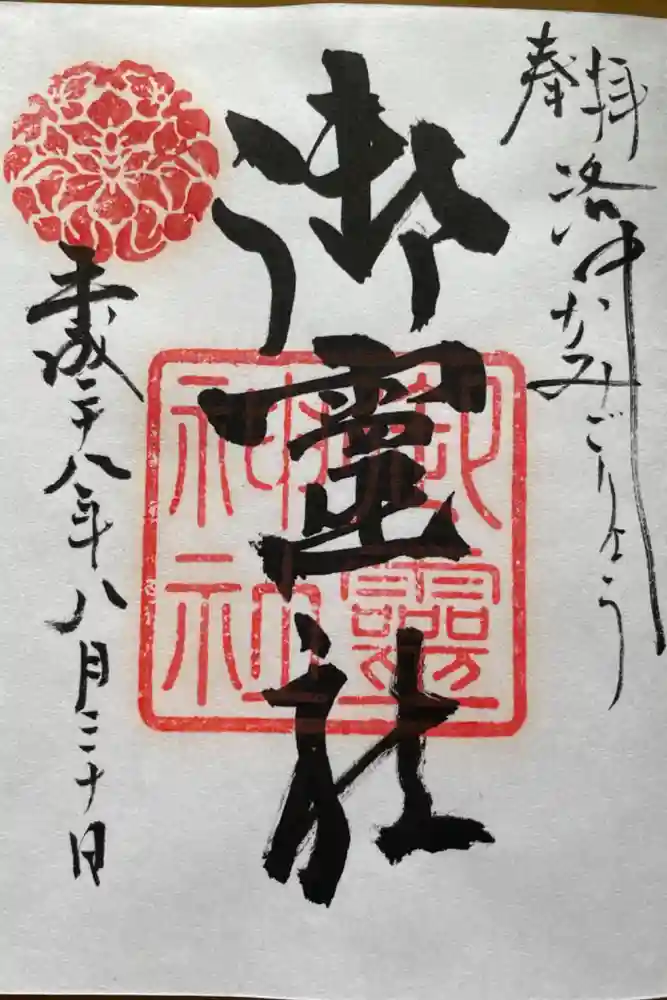 奉拝
洛中かみごりょう
御靈社
御靈
神社
歳二十八年八月三十日